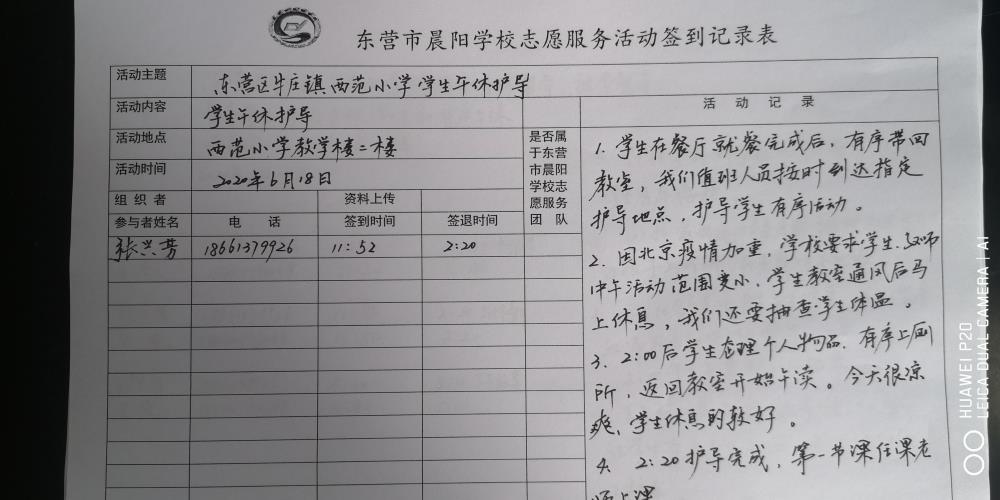 东营市晨阳学校志愿服务活动签到记录表
活动主题 东营区牛庄镇西范小学学生午休护导
活动内容 学生午休护导
活动地点 西范小学教学楼二楼
活动时间 2020年6月18日
组织者 资料上传
参与者姓名 电话 签到时间 签退时间
张兴芳 18661379926 11:52 2:20
是否属
于东营
市晨阳
学校志
愿服务
团队
活动记录
1. 学生在餐厅就餐完成后，有序带回
教室，我们值班人员按时到达指定
护导地点，护导学生有序活动。
2. 因北京疫情加重，学校要求学生、教师
中午活动范围变小，学生教室通风后马
上休息，我们还要抽查学生体温。
3. 2:00后学生整理个人物品，有序上厕
所，返回教室开始午读。今天很凉
爽，学生休息的较好。
4. 2:20护导完成，第一节课任课老
师上课
HUAWEI P20
LEICA DUAL CAMERA | AI